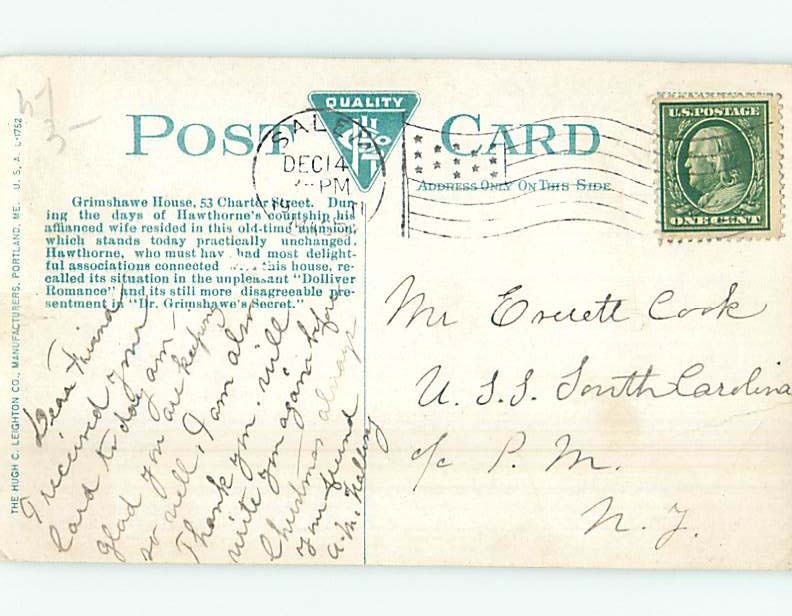 5-/
3-
QUALITY
POST CARD
ADDRESS ONLY ON THIS SIDE.
U.S. POSTAGE
ONE CENT
SALEM
DEC 14
PM
Grimshawe House, 53 Charter Street. Dur-
ing the days of Hawthorne's courtship his
affianced wife resided in this old-time mansion,
which stands today practically unchanged.
Hawthorne, who must hav had most delight-
ful associations connected this house, re-
called its situation in the unpleasant "Dolliver
Romance" and its still more disagreeable pre-
sentment in "Dr. Grimshawe's Secret."
THE HUGH C. LEIGHTON CO., MANUFACTURERS, PORTLAND, ME. U. S. A. L-1752
Dear Friend
I received your
card to day am
glad you are keeping
so well, I am also
Thank you. will
write you again before
Christmas always
your friend
A. M.
Mr Everett Cook
U. S. S. South Carolina
c/o P. M.
N. Y.